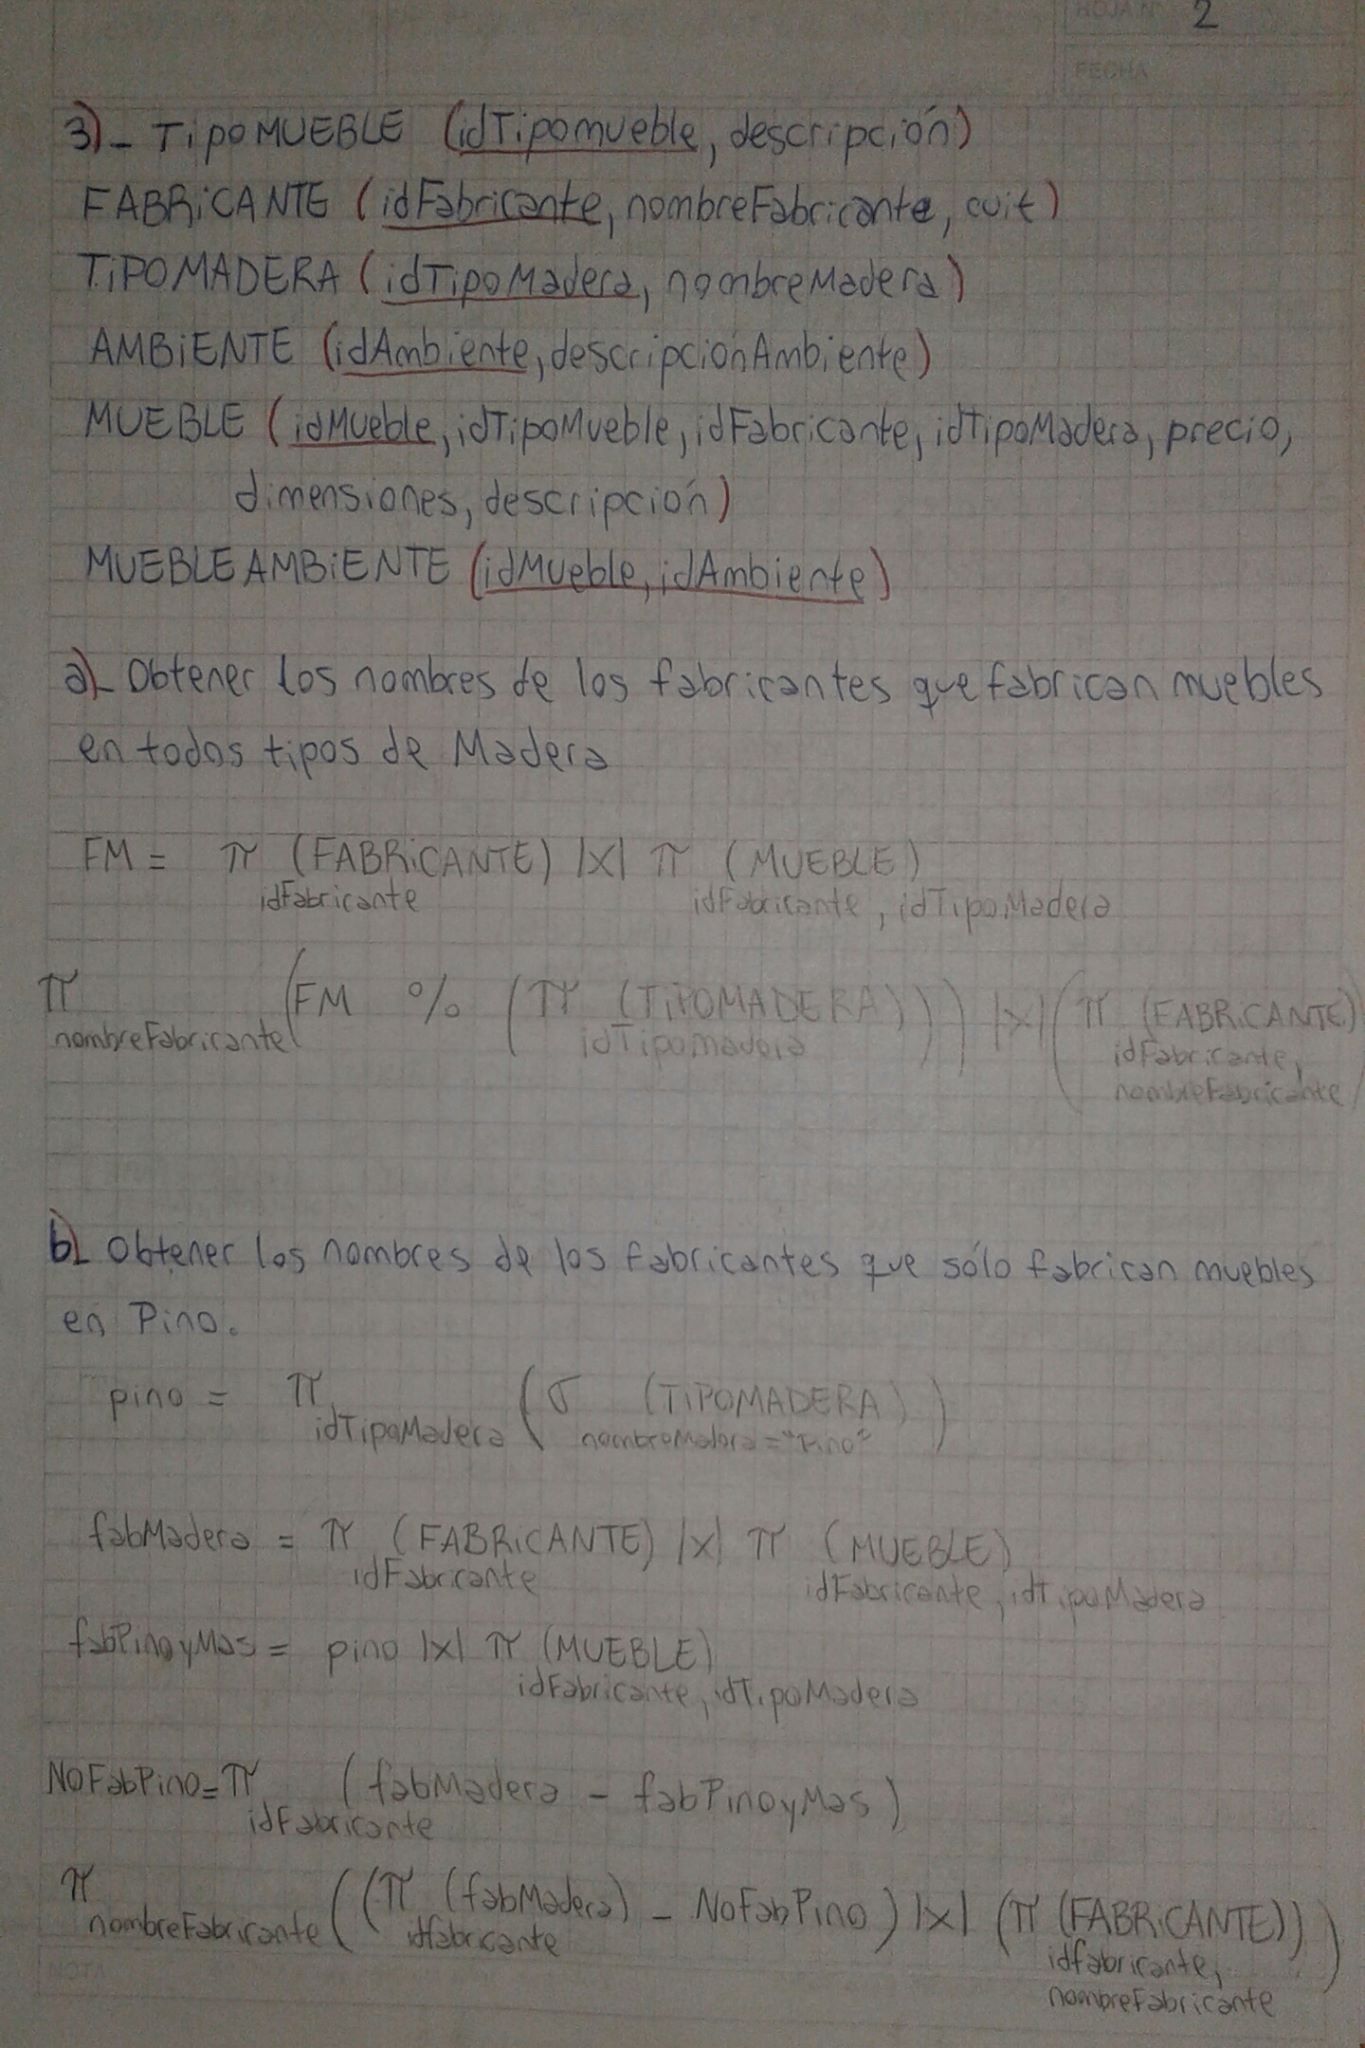 HOJA Nº 2
FECHA
3)- TipoMUEBLE (idTipomueble, descripción)
FABRiCANTE (idFabricante, nombreFabricante, cuit)
TiPOMADERA (idTipoMadera, nombreMadera)
AMBiENTE (idAmbiente, descripciónAmbiente)
MUEBLE (idMueble, idTipoMueble, idFabricante, idTipoMadera, precio,
dimensiones, descripción)
MUEBLEAMBiENTE (idMueble, idAmbiente)
a)- Obtener los nombres de los fabricantes que fabrican muebles
en todos tipos de Madera
FM = π (FABRiCANTE) |X| π (MUEBLE)
idFabricante idFabricante, idTipoMadera
π (FM % (π (TiPOMADERA))) |X| (π (FABRiCANTE)
nombreFabricante idTipomadera idFabricante,
nombreFabricante
b)- Obtener los nombres de los fabricantes que sólo fabrican muebles
en Pino.
pino = π (σ (TiPOMADERA))
idTipoMadera nombreMadera="Pino"
fabMadera = π (FABRiCANTE) |X| π (MUEBLE)
idFabricante idFabricante, idTipoMadera
fabPinoyMas = pino |X| π (MUEBLE)
idFabricante, idTipoMadera
NoFabPino = π (fabMadera - fabPinoyMas)
idFabricante
π ((π (fabMadera) - NoFabPino) |X| (π (FABRiCANTE)))
nombreFabricante idfabricante idfabricante,
nombreFabricante
NOTA